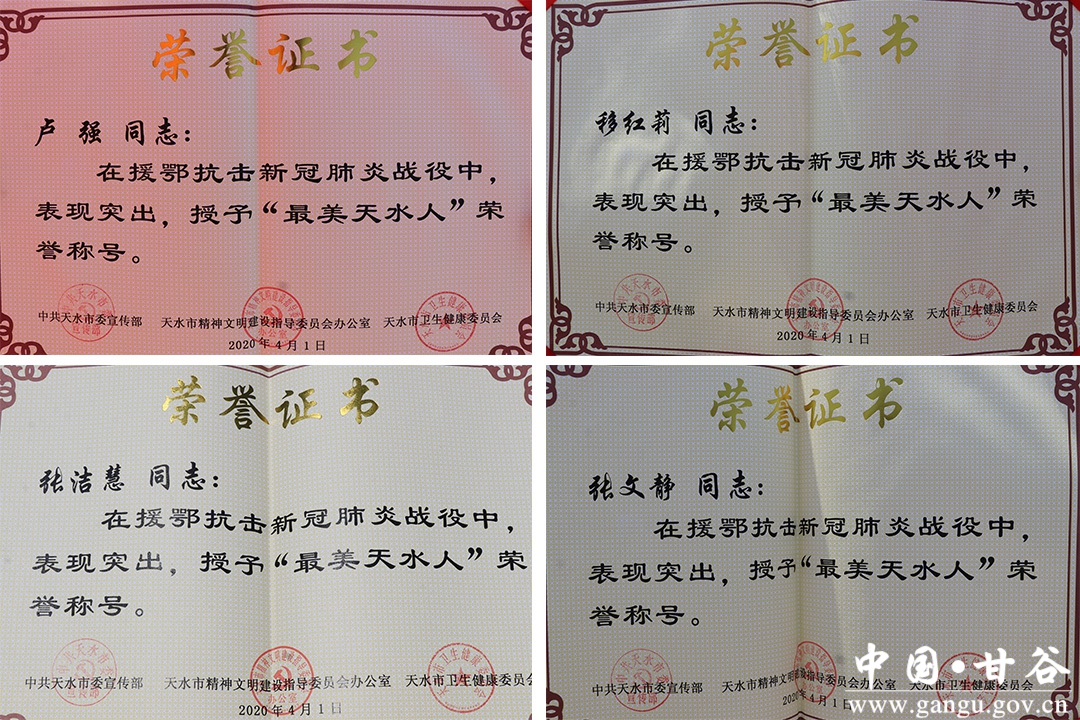 荣誉证书
卢强 同志：
在援鄂抗击新冠肺炎战役中，
表现突出，授予“最美天水人”荣
誉称号。
中共天水市委宣传部 天水市精神文明建设指导委员会办公室 天水市卫生健康委员会
2020年4月1日
荣誉证书
移红莉 同志：
在援鄂抗击新冠肺炎战役中，
表现突出，授予“最美天水人”荣
誉称号。
中共天水市委宣传部 天水市精神文明建设指导委员会办公室 天水市卫生健康委员会
2020年4月1日
荣誉证书
张洁慧 同志：
在援鄂抗击新冠肺炎战役中，
表现突出，授予“最美天水人”荣
誉称号。
中共天水市委宣传部 天水市精神文明建设指导委员会办公室 天水市卫生健康委员会
2020年4月1日
荣誉证书
张文静 同志：
在援鄂抗击新冠肺炎战役中，
表现突出，授予“最美天水人”荣
誉称号。
中共天水市委宣传部 天水市精神文明建设指导委员会办公室 天水市卫生健康委员会
2020年4月1日
中国·甘谷
www.gangu.gov.cn